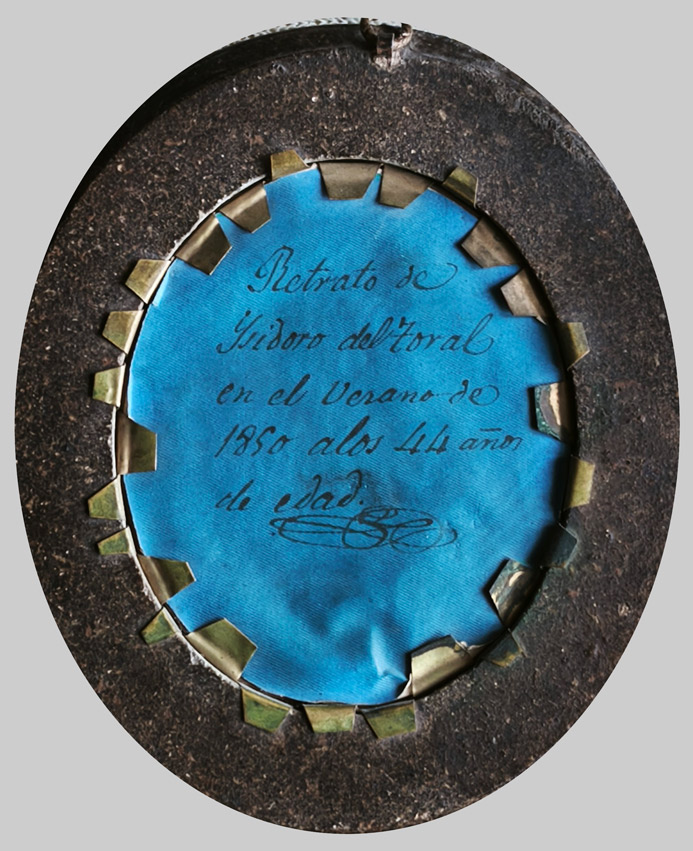 Retrato de
Ysidoro del Toral
en el verano de
1850 alos 44 años
de edad.